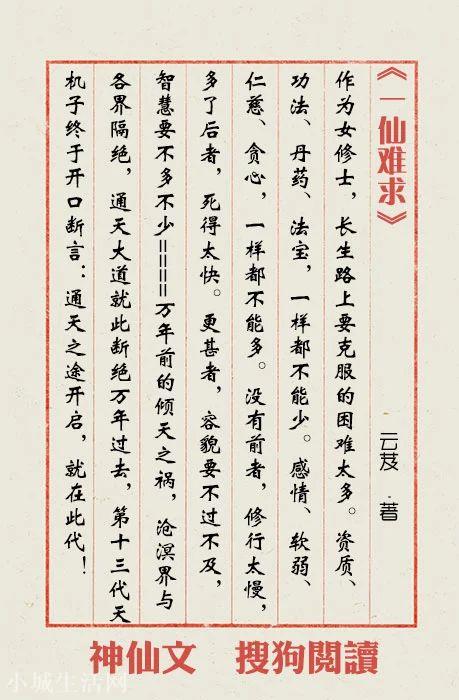 《一仙难求》
云芨·著
作为女修士，长生路上要克服的困难太多。资质、
功法、丹药、法宝，一样都不能少。感情、软弱、
仁慈、贪心，一样都不能多。没有前者，修行太慢，
多了后者，死得太快。更甚者，容貌要不过不及，
智慧要不多不少====万年前的倾天之祸，沧溟界与
各界隔绝，通天大道就此断绝万年过去，第十三代天
机子终于开口断言：通天之途开启，就在此代！
神仙文 搜狗閱讀
小城生活网